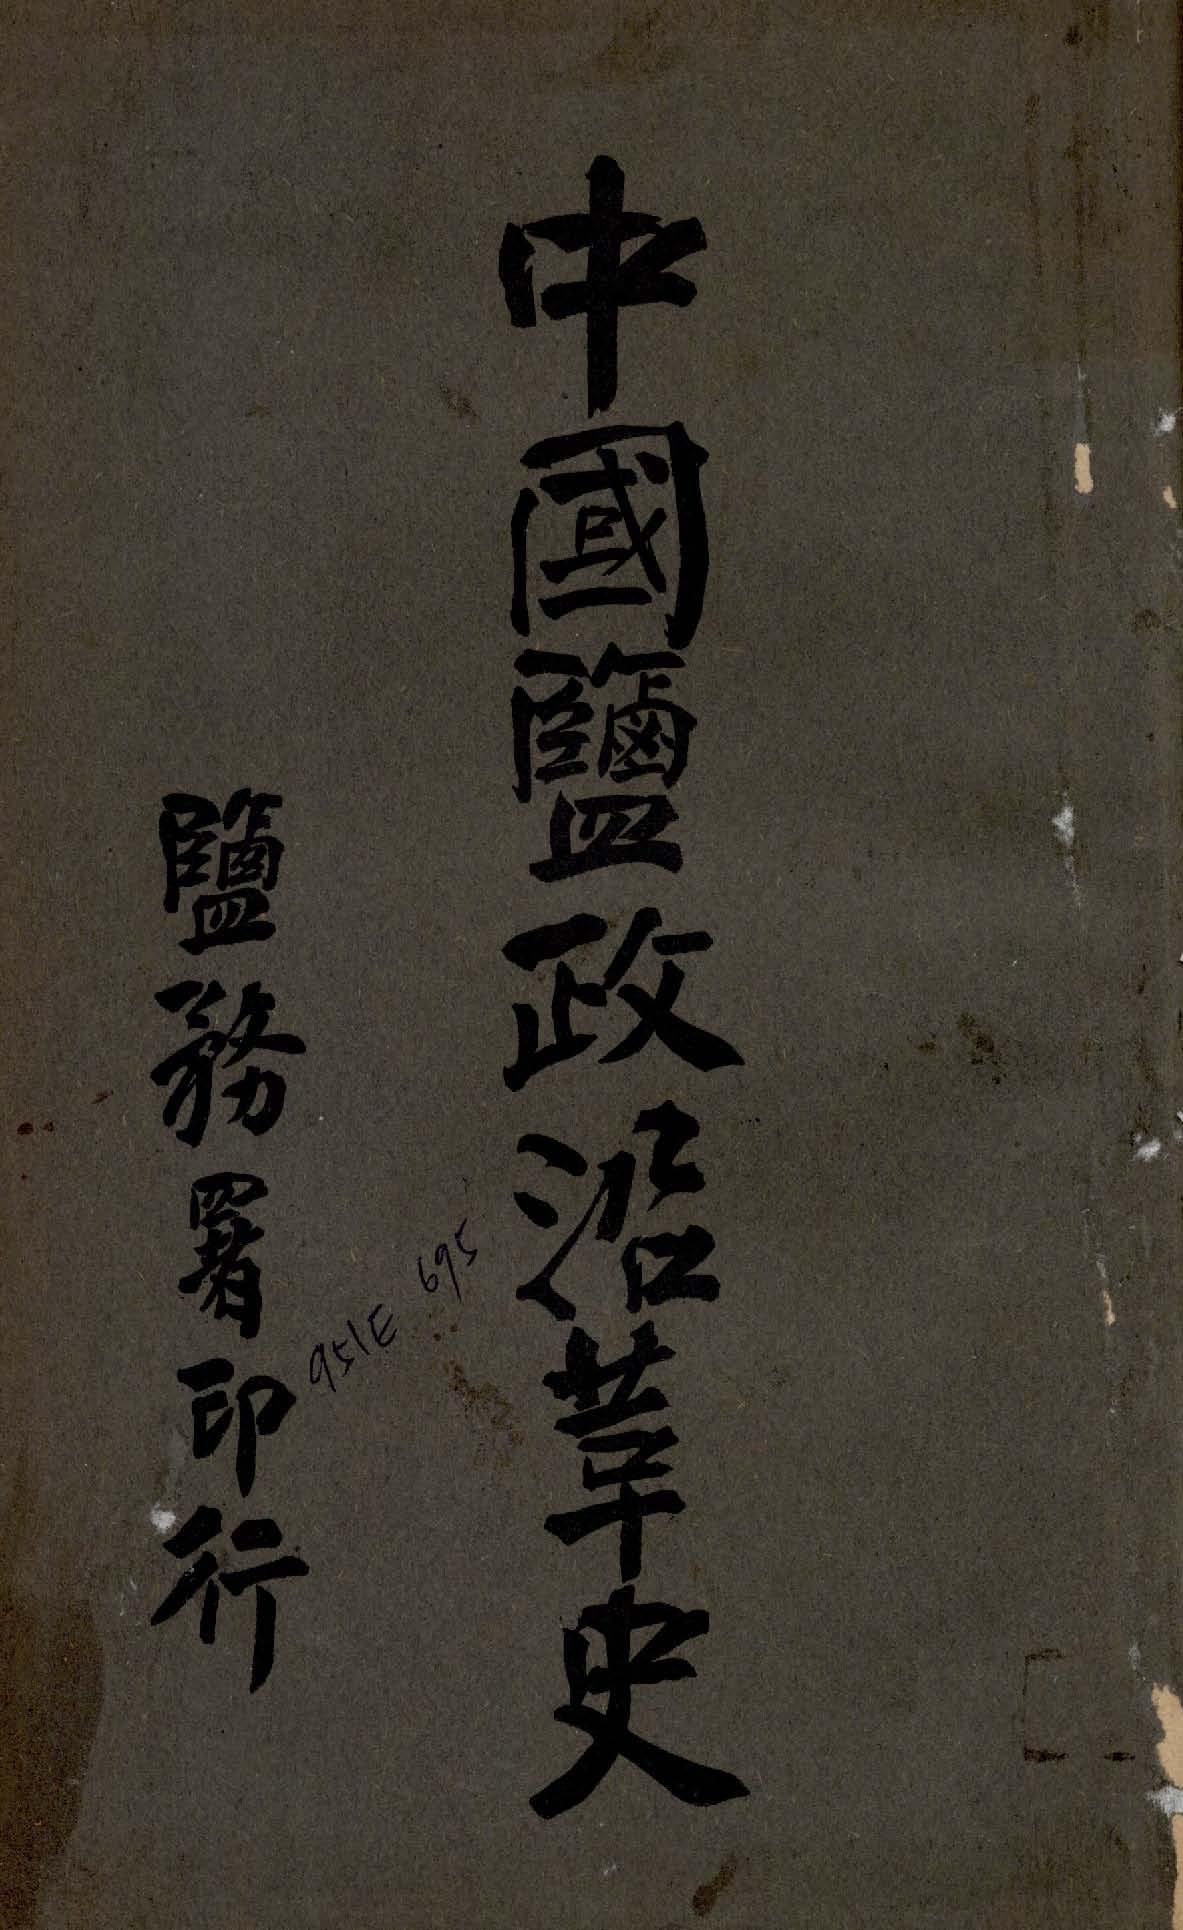 中國鹽政沿革史
鹽務署印行
951E 695